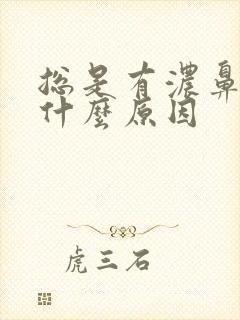 总是有濃鼻
什麼原因
虎三石